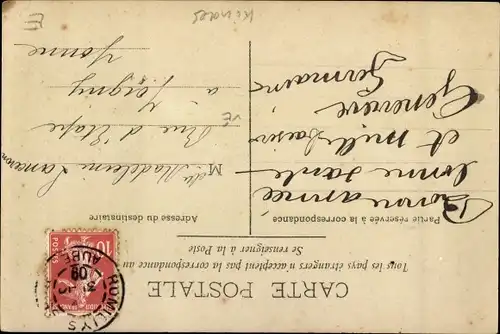 CARTE POSTALE
Tous les pays étrangers n'acceptent pas la correspondance au
Se renseigner à la Poste
Partie réservée à la correspondance
Adresse du destinataire
Bonne année
bonne santé
et mille baisers
Genevieve
Germaine
Mlle Madeleine
Rue d'Etape
à Joigny
Yonne
10
POSTES
AUBE
09
Kindes
E
VE